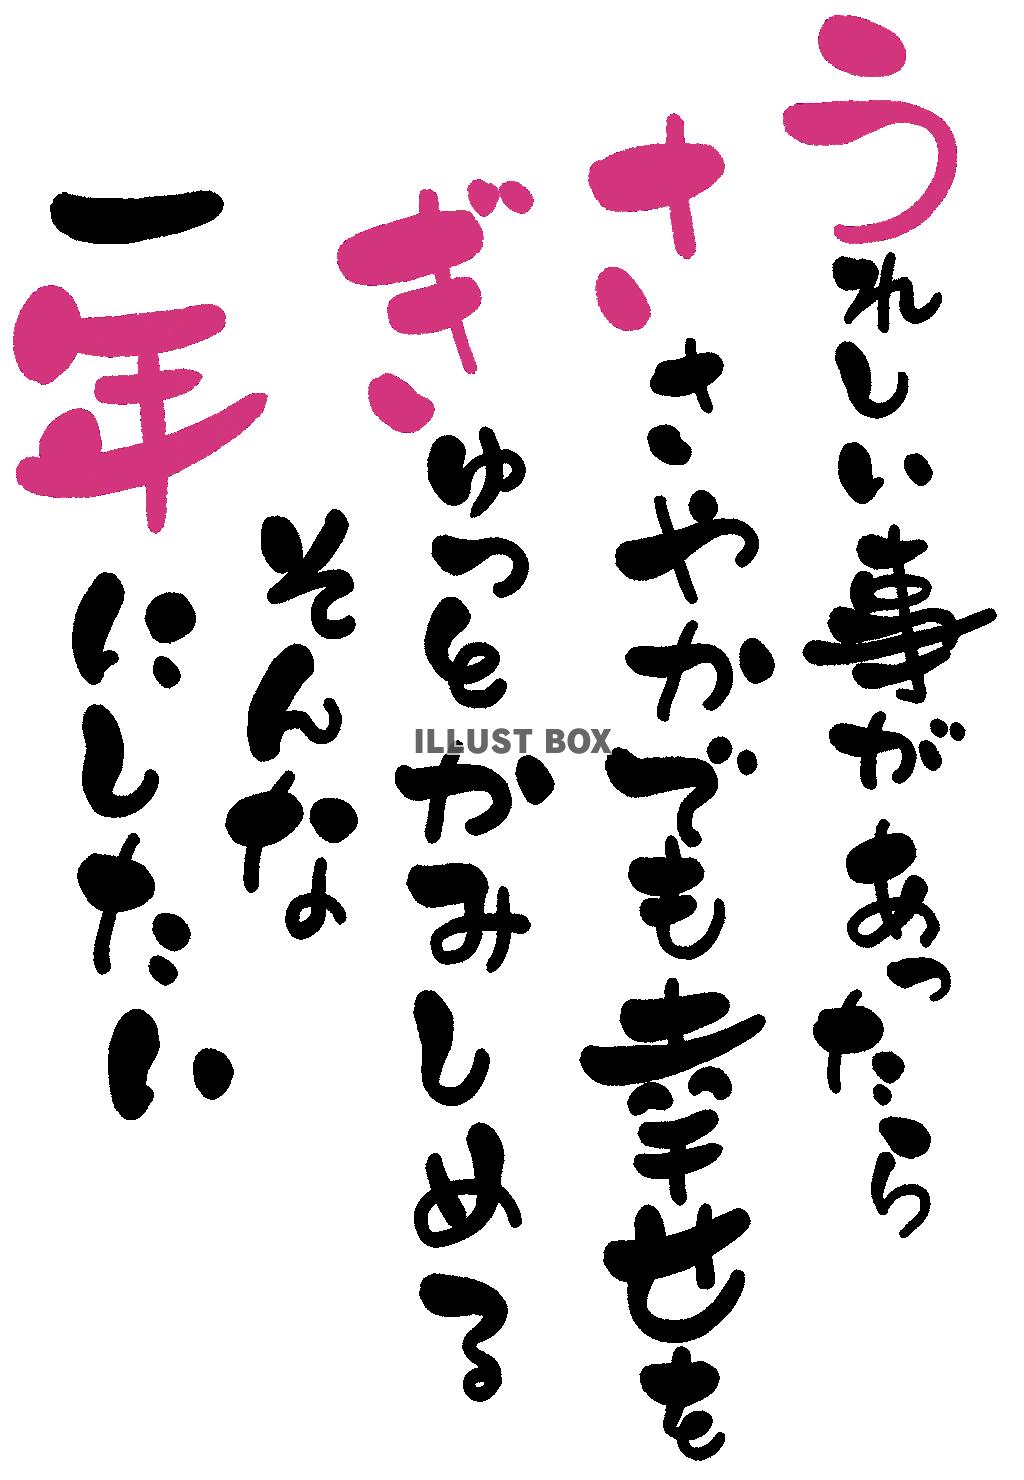 うれしい事があったら
ささやかでも幸せを
ぎゅっとかみしめる
そんな
一年にしたい
ILLUST BOX